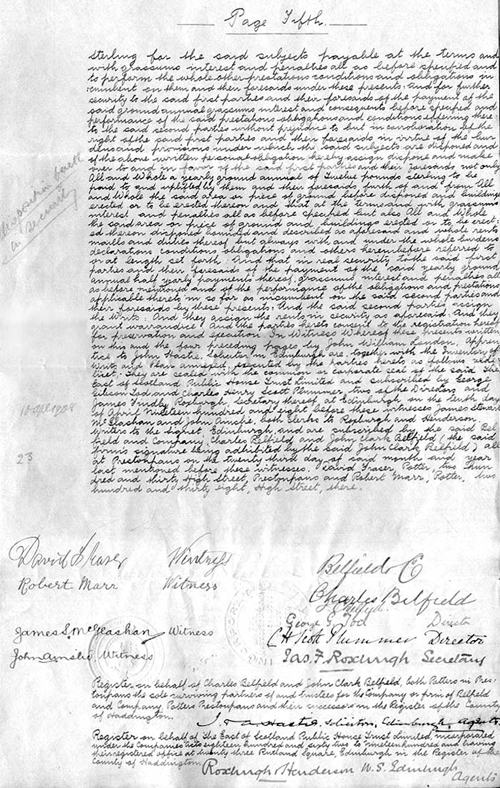 Page Fifth.
sterling for the said subjects payable at the terms and
with grassums interest and penalties all as before specified and
to perform the whole other prestations conditions and obligations in-
cumbent on them and their foresaids under these presents: And for further
security to the said first parties and their foresaids of the payment of the
said ground annual grassums interest and consequents before specified and
performance of the said prestations obligations and conditions offering these
to the said second parties without prejudice to but in corroboration of the
right of the said first parties and their foresaids in virtue of the
and provisions under which the said subjects are disponed and
of the above written personal obligation hereby assign dispone and make
over to and in favor of the said first parties and their foresaids not only
All and Whole a yearly ground annual of Twelve pounds sterling to be
paid to and uplifted by them and their foresaids furth of and from All
and Whole the said area or piece of ground before disponed and buildings
erected or to be erected thereon and that at the terms and with grassums
interest and penalties all as before specified but also All and Whole
the said area or piece of ground and buildings erected or to be erect-
ed thereon disponed bounded and described as aforesaid and whole rents
maills and duties thereof but always with and under the whole burdens
declarations conditions obligations and others hereinbefore referred to
or at length set forth: And that in real security to the said first
parties and their foresaids of the payment of the said yearly ground
annual half yearly payments thereof, grassums interest and penalties all
as before mentioned and of the performance of the obligations and prestations
applicable thereto in so far as incumbent on the said second parties and
their foresaids by these presents: And the said second parties assign
the writs: And they assign the rents in security as aforesaid: And they
grant warrandice: And the parties hereto consent to the registration hereof
for preservation and execution: In Witness Whereof these presents written
on this and the four preceding pages by John William London, Appren-
tice to John Hastie, Solicitor in Edinburgh are together with the Inventory of
Writs and Plan annexed, executed by the parties hereto as follows viz:
They are sealed with the common or corporate seal of the said The
East of Scotland Public House Trust Limited and subscribed by George
Gibson Tod and Charles Henry Scott Plummer, two of the Directors and
James Findlay Roxburgh, Secretary thereof at Edinburgh on the tenth day
of April Nineteen hundred and eight before these witnesses James Stewart
McGlashan and John Amelie, both Clerks to Roxburgh and Henderson
Writers to the Signet Edinburgh, and are subscribed by the said Bel-
field and Company, Charles Belfield and John Clark Belfield (the said
firm's signature being adhibited by the said John Clark Belfield) all
at Prestonpans on the twenty third day of said month and year
last mentioned before these witnesses, David Fraser, Potter, two hun-
dred and thirty, High Street, Prestonpans and Robert Marr, Potter, two
hundred and thirty eight, High Street, there.
10 Apl 1908
23
David Fraser Witness
Belfield & Co
Robert Marr Witness
Charles Belfield
George G. Tod Director
James S. McGlashan Witness
C H Scott Plummer Director
John Amelie, Witness
Jas. F. Roxburgh Secretary
Register on behalf of Charles Belfield and John Clark Belfield, both Potters in Pres-
tonpans the sole surviving partners of and trustees for the Company or firm of Belfield
and Company, Potters Prestonpans and their successors in the Register of the County
of Haddington.
Hastie, Solicitor, Edinburgh, Agents
Register on behalf of the East of Scotland Public House Trust Limited, incorporated
under the Companies Acts eighteen hundred and sixty two to nineteen hundred and having
their registered office at twenty three Rutland Square, Edinburgh in the Register of the
County of Haddington.
Roxburgh & Henderson W.S. Edinburgh
Agents